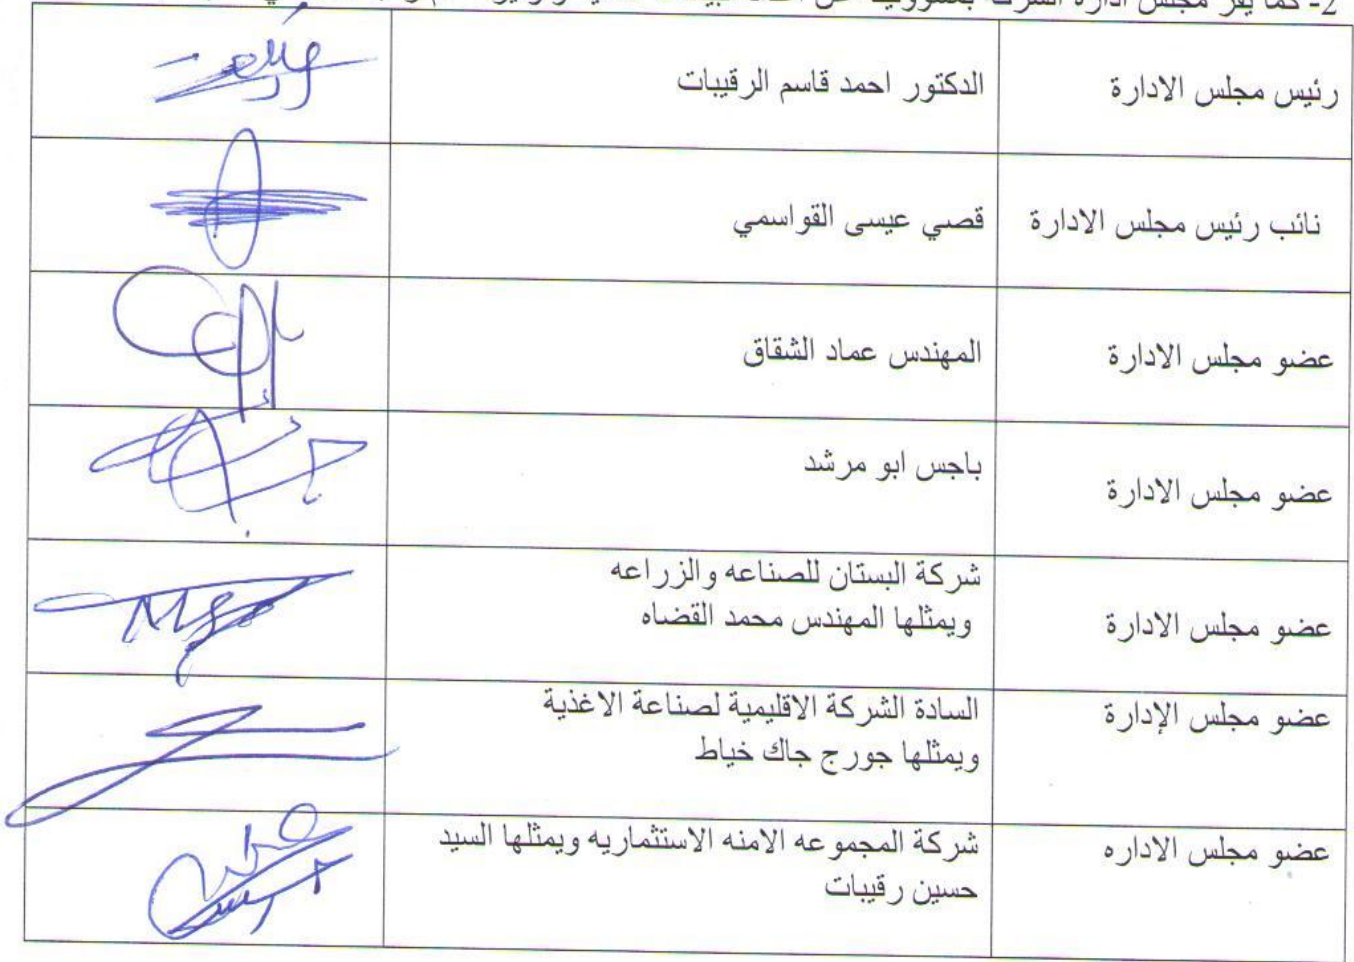 2- كما يقر مجلس ادارة الشركة
رئيس مجلس الادارة
الدكتور احمد قاسم الرقيبات
نائب رئيس مجلس الادارة
قصي عيسى القواسمي
عضو مجلس الادارة
المهندس عماد الشقاق
عضو مجلس الادارة
باجس ابو مرشد
عضو مجلس الادارة
شركة البستان للصناعه والزراعه
ويمثلها المهندس محمد القضاه
عضو مجلس الإدارة
السادة الشركة الاقليمية لصناعة الاغذية
ويمثلها جورج جاك خياط
عضو مجلس الاداره
شركة المجموعه الامنه الاستثماريه ويمثلها السيد
حسين رقيبات